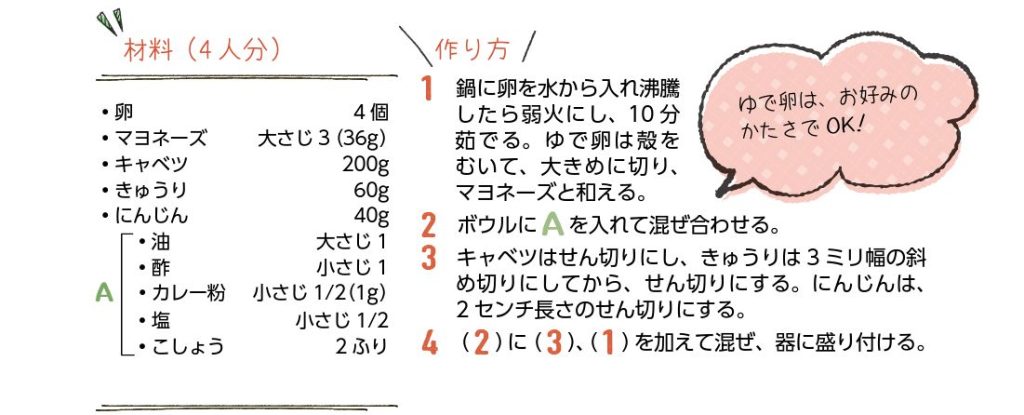 材料（4人分）
・卵 4個
・マヨネーズ 大さじ3(36g)
・キャベツ 200g
・きゅうり 60g
・にんじん 40g
A
・油 大さじ1
・酢 小さじ1
・カレー粉 小さじ1/2(1g)
・塩 小さじ1/2
・こしょう 2ふり
作り方
1 鍋に卵を水から入れ沸騰
したら弱火にし、10分
茹でる。ゆで卵は殻を
むいて、大きめに切り、
マヨネーズと和える。
2 ボウルにAを入れて混ぜ合わせる。
3 キャベツはせん切りにし、きゅうりは3ミリ幅の斜
め切りにしてから、せん切りにする。にんじんは、
2センチ長さのせん切りにする。
4 (2)に(3)、(1)を加えて混ぜ、器に盛り付ける。
ゆで卵は、お好みの
かたさでOK!